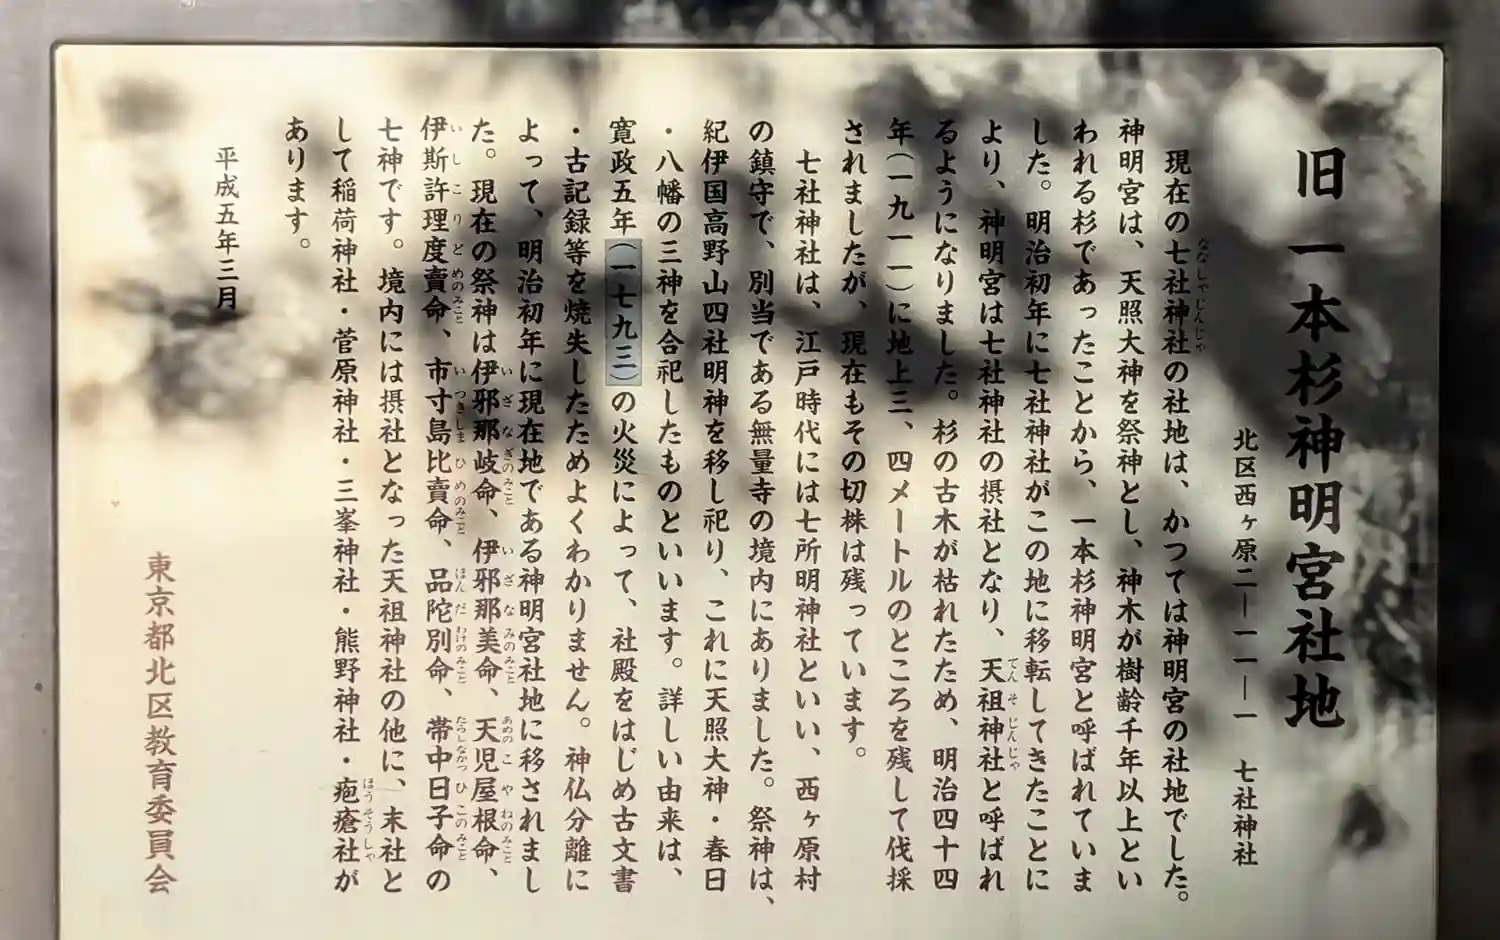 旧一本杉神明宮社地
北区西ヶ原二―一一―一　七社神社
現在の七社神社の社地は、かつては神明宮の社地でした。
神明宮は、天照大神を祭神とし、神木が樹齢千年以上とい
われる杉であったことから、一本杉神明宮と呼ばれていま
した。明治初年に七社神社がこの地に移転してきたことに
より、神明宮は七社神社の摂社となり、天祖神社と呼ばれ
るようになりました。杉の古木が枯れたため、明治四十四
年(一九一一)に地上三、四メートルのところを残して伐採
されましたが、現在もその切株は残っています。
七社神社は、江戸時代には七所明神社といい、西ヶ原村
の鎮守で、別当である無量寺の境内にありました。祭神は、
紀伊国高野山四社明神を移し祀り、これに天照大神・春日
・八幡の三神を合祀したものといいます。詳しい由来は、
寛政五年(一七九三)の火災によって、社殿をはじめ古文書
・古記録等を焼失したためよくわかりません。神仏分離に
よって、明治初年に現在地である神明宮社地に移されまし
た。現在の祭神は伊邪那岐命、伊邪那美命、天児屋根命、
伊斯許理度賣命、市寸島比賣命、品陀別命、帯中日子命の
七神です。境内には摂社となった天祖神社の他に、末社と
して稲荷神社・菅原神社・三峯神社・熊野神社・疱瘡社が
あります。
平成五年三月
東京都北区教育委員会